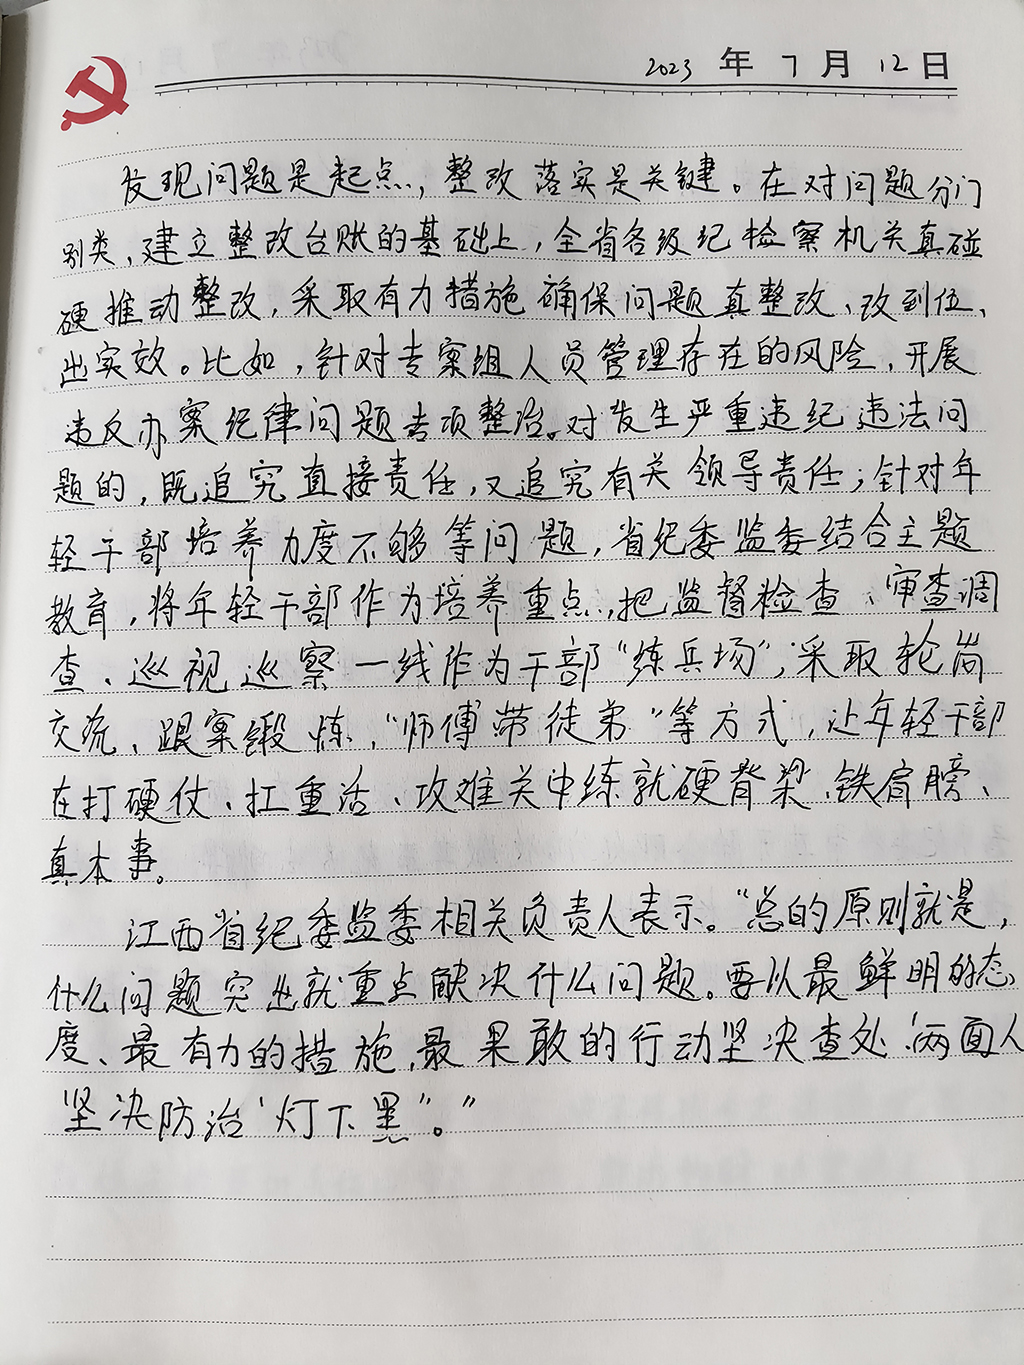 2023 年 7 月 12 日
发现问题是起点，整改落实是关键。在对问题分门
别类，建立整改台账的基础上，全省各级纪检察机关真碰
硬推动整改，采取有力措施确保问题真整改、改到位、
出实效。比如，针对专案组人员管理存在的风险，开展
违反办案纪律问题专项整治。对发生严重违纪违法问
题的，既追究直接责任，又追究有关领导责任；针对年
轻干部培养力度不够等问题，省纪委监委结合主题
教育，将年轻干部作为培养重点，把监督检查、审查调
查、巡视巡察一线作为干部“练兵场”，采取轮岗
交流、跟案锻炼，“师傅带徒弟”等方式，让年轻干部
在打硬仗、扛重活、攻难关中练就硬脊梁、铁肩膀、
真本事。
江西省纪委监委相关负责人表示。“总的原则就是，
什么问题突出就重点解决什么问题。要以最鲜明的态
度、最有力的措施，最果敢的行动坚决查处‘两面人
坚决防治‘灯下黑”。”